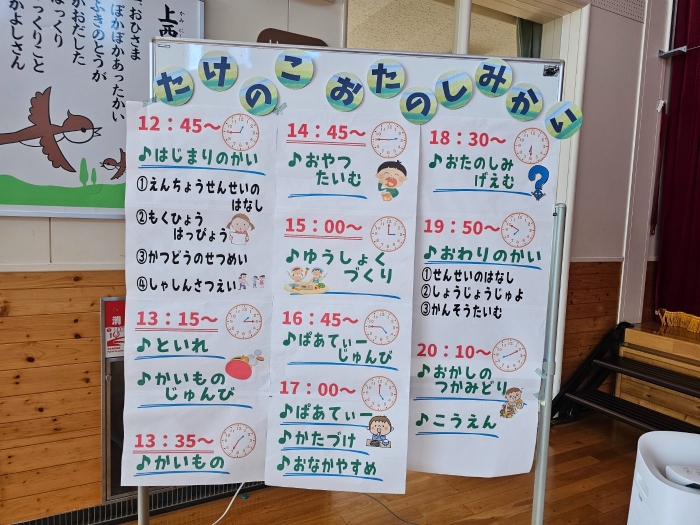 たけのこおたのしみかい
12：45～
♪はじまりのかい
①えんちょうせんせいの
はなし
②もくひょう
はっぴょう
③かつどうのせつめい
④しゃしんさつえい
13：15～
♪といれ
♪かいもの
じゅんび
13：35～
♪かいもの
14：45～
♪おやつ
たいむ
15：00～
♪ゆうしょく
づくり
16：45～
♪ぱあてぃー
じゅんび
17：00～
♪ぱあてぃー
♪かたづけ
♪おなかやすめ
18：30～
♪おたのしみ
げえむ
19：50～
♪おわりのかい
①せんせいのはなし
②しょうじょうじゅよ
③かんそうたいむ
20：10～
♪おかしの
つかみどり
♪こうえん
上西
おひさま
ぽかぽかあったかい
ふきのとうが
かおだした
っくりこと
かよしさん
消